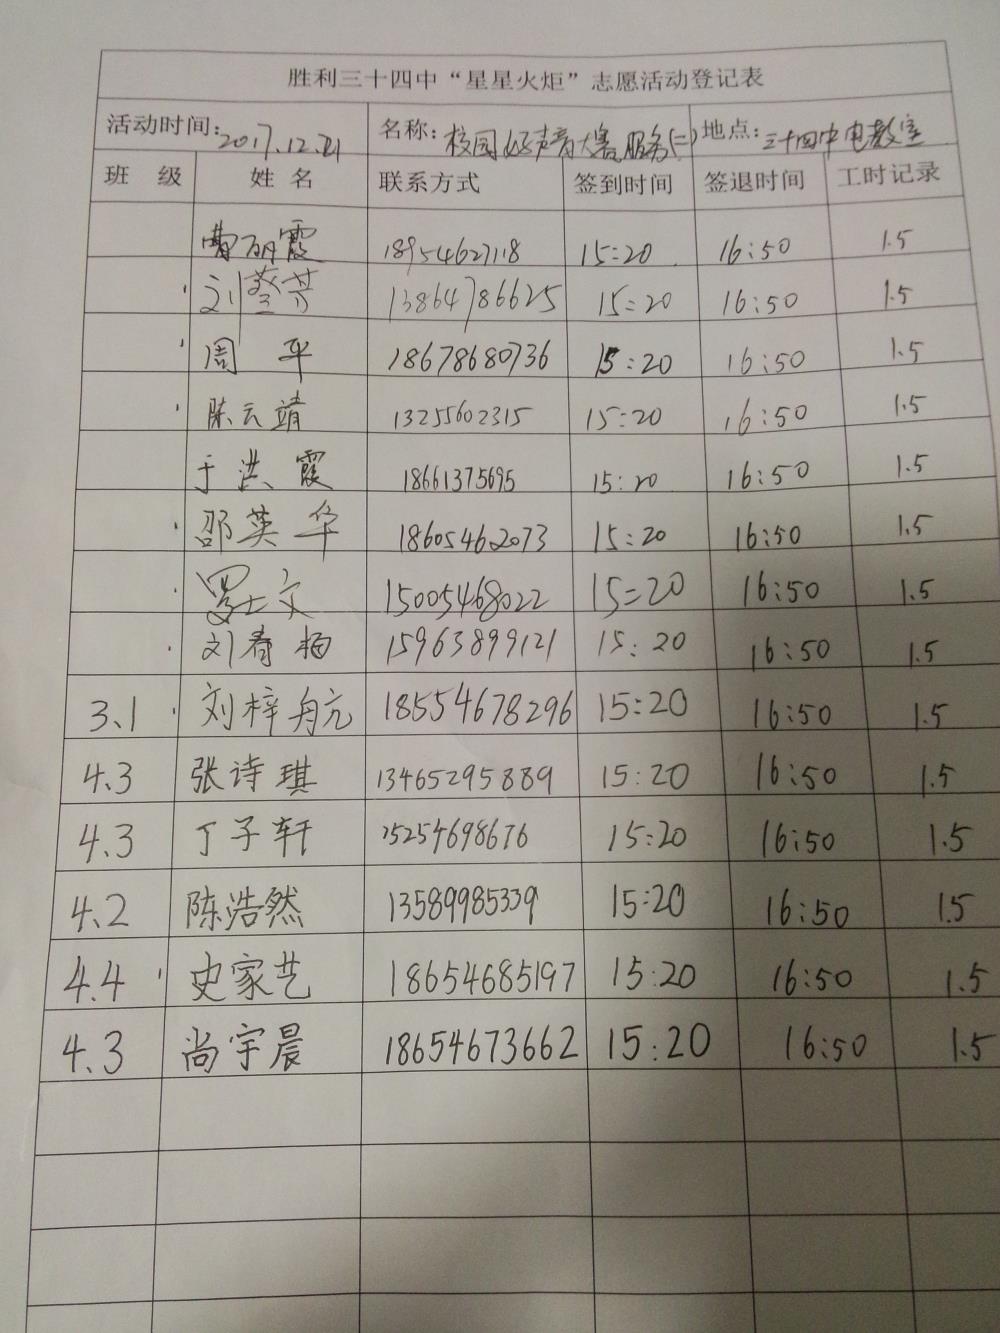 胜利三十四中“星星火炬”志愿活动登记表
活动时间：2017.12.21 名称：校园好声音大赛服务(二) 地点：三十四中电教室
班 级 姓 名 联系方式 签到时间 签退时间 工时记录
曹丽霞 18954627118 15:20 16:50 1.5
刘莹芳 13864786625 15:20 16:50 1.5
周 平 18678680736 15:20 16:50 1.5
陈云靖 13255602315 15:20 16:50 1.5
于洪霞 18661375695 15:20 16:50 1.5
邵英华 18605462073 15:20 16:50 1.5
文 15005468022 15:20 16:50 1.5
刘春梅 15963899121 15:20 16:50 1.5
3.1 刘梓航 18554678296 15:20 16:50 1.5
4.3 张诗琪 13465295889 15:20 16:50 1.5
4.3 丁子轩 15254698676 15:20 16:50 1.5
4.2 陈浩然 13589985339 15:20 16:50 1.5
4.4 史家艺 18654685197 15:20 16:50 1.5
4.3 尚宇晨 18654673662 15:20 16:50 1.5